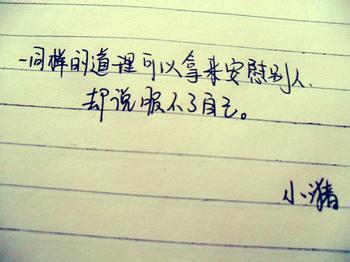 一同样的道理可以拿来安慰别人.
却说服不了自己。
小猪